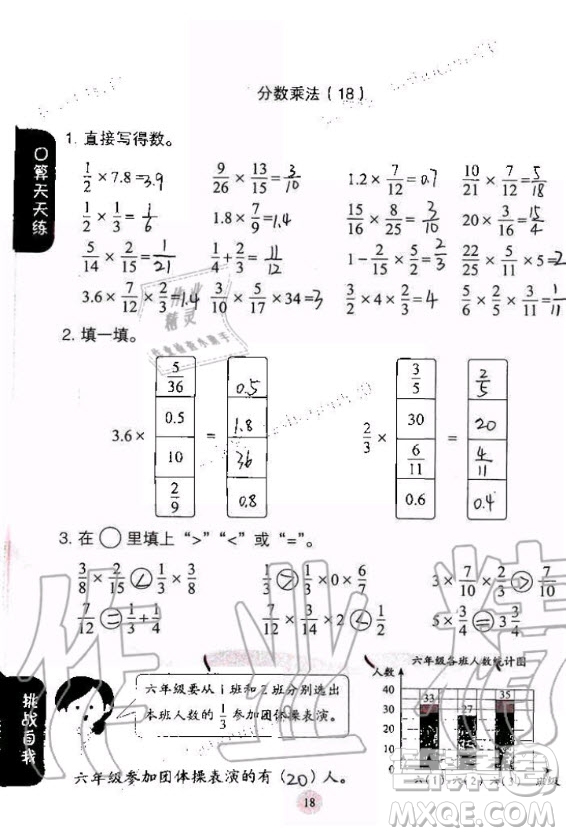 分数乘法(18)
口算天天练
1. 直接写得数。
1/2 × 7.8 = 3.9  9/26 × 13/15 = 3/10  1.2 × 7/12 = 0.7  10/21 × 7/12 = 5/18
1/2 × 1/3 = 1/6  1.8 × 7/9 = 1.4  15/16 × 8/25 = 3/10  20 × 3/16 = 15/4
5/14 × 2/15 = 1/21  1/4 + 2/3 = 11/12  1 - 2/15 × =  22/25 × 5/11 × 5 = 2
3.6 × 7/12 × 2/3 = 1.4  3/10 × 5/17 × 34 = 3  3/2 × 4 × 2/3 = 4  5/6 × 2/5 × 3/11 = 1/11
2. 填一填。
3.6 × 5/36 = 0.5  2/3 × 3/5 = 2/5
0.5 1.8  30 20
10 36  6/11 4/11
2/9 0.8  0.6 0.4
3. 在○里填上“>”“<”或“=”。
3/8 × 2/15 < 1/3 × 3/8  1/3 > 1/3 × 0 × 6/7  3 × 7/10 × 2/3 > 7/10
7/12 = 1/3 + 1/4  7/12 × 2 < 2  5 × 3/4 = 3 3/4
挑战自我
六年级要从1班和2班分别选出
本班人数的1/3参加团体操表演。
六年级参加团体操表演的有(20)人。
六年级各班人数统计图
人数
40
30
20
10
0
33 27 35
六(1) 六(2) 六(3) 班级
18
作业精灵
MXQE.COM